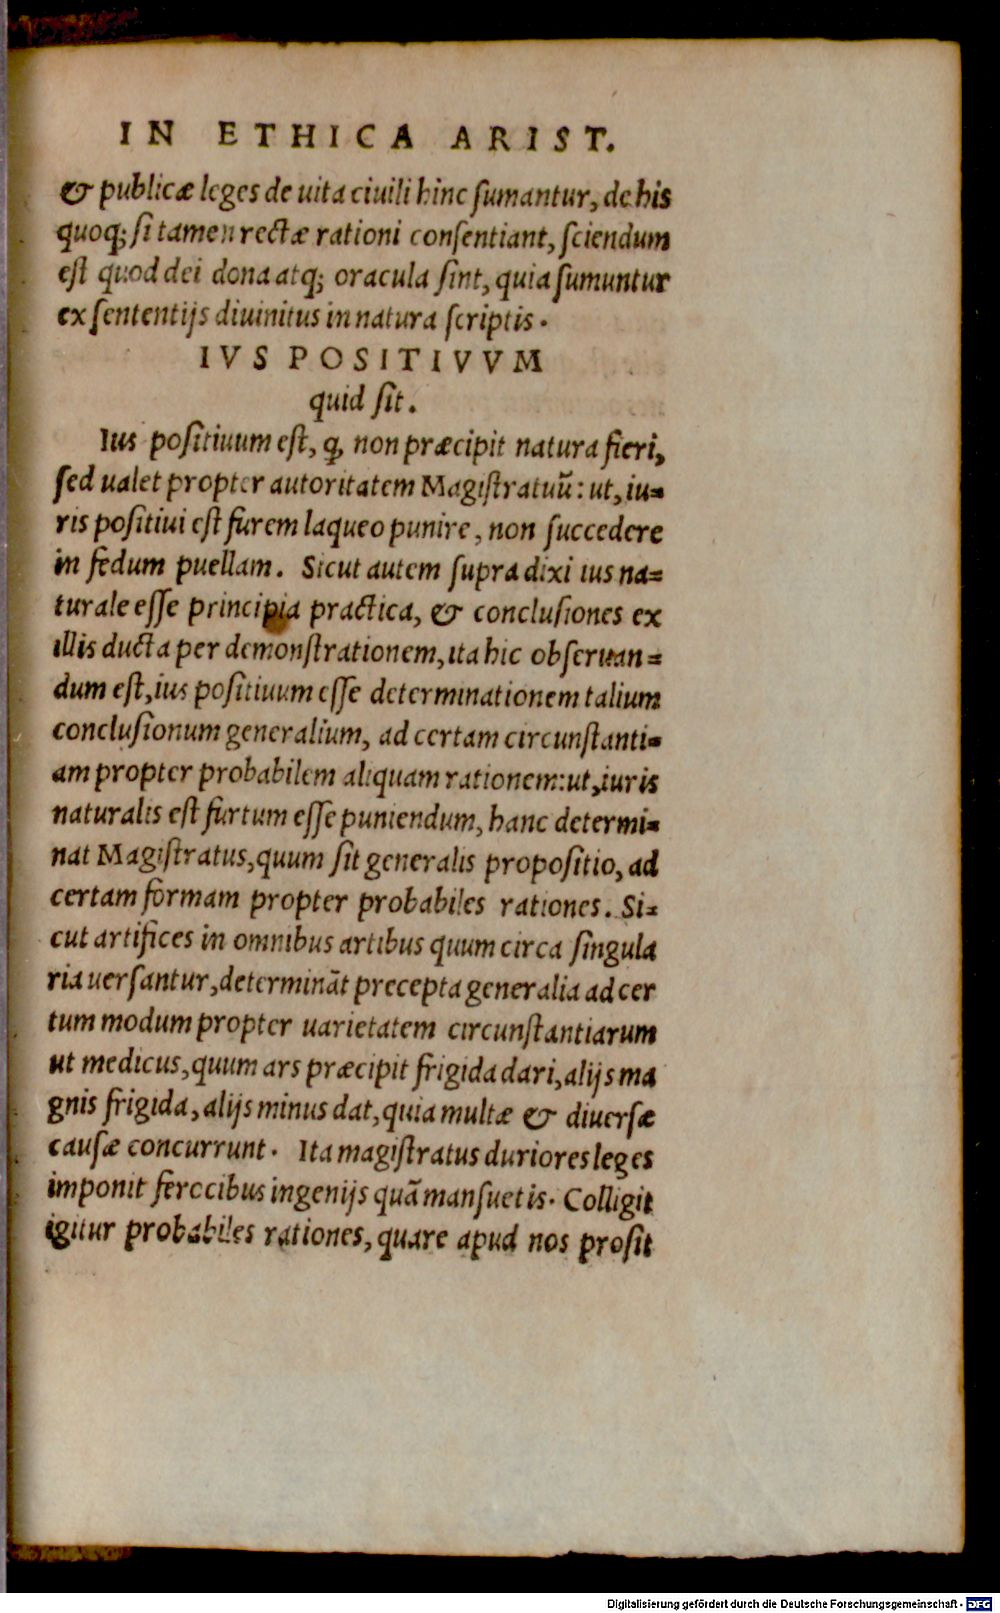 IN ETHICA ARIST.
& publicæ leges de uita ciuili hinc ſumantur, de his
quoq; ſi tamen rectæ rationi conſentiant, ſciendum
eſt quod dei dona atq; oracula ſint, quia ſumuntur
ex ſententijs diuinitus in natura ſcriptis.
IVS POSITIVVM
quid ſit.
Ius poſitiuum eſt, ꝙ non præcipit natura fieri,
ſed ualet propter autoritatem Magiſtratuū: ut, iu=
ris poſitiui eſt furem laqueo punire, non ſuccedere
in fedum puellam. Sicut autem ſupra dixi ius na=
turale eſſe principia practica, & concluſiones ex
illis ducta per demonſtrationem, ita hic obſeruan=
dum eſt, ius poſitiuum eſſe determinationem talium
concluſionum generalium, ad certam circunſtanti=
am propter probabilem aliquam rationem: ut, iuris
naturalis eſt furtum eſſe puniendum, hanc determi=
nat Magiſtratus, quum ſit generalis propoſitio, ad
certam formam propter probabiles rationes. Si=
cut artifices in omnibus artibus quum circa ſingula
ria uerſantur, determināt precepta generalia ad cer
tum modum propter uarietatem circunſtantiarum
ut medicus, quum ars præcipit frigida dari, alijs ma
gnis frigida, alijs minus dat, quia multæ & diuerſæ
cauſæ concurrunt. Ita magiſtratus duriores leges
imponit ferocibus ingenijs quā manſuetis. Colligit
igitur probabiles rationes, quare apud nos proſit
Digitalisierung gefördert durch die Deutsche Forschungsgemeinschaft - DFG